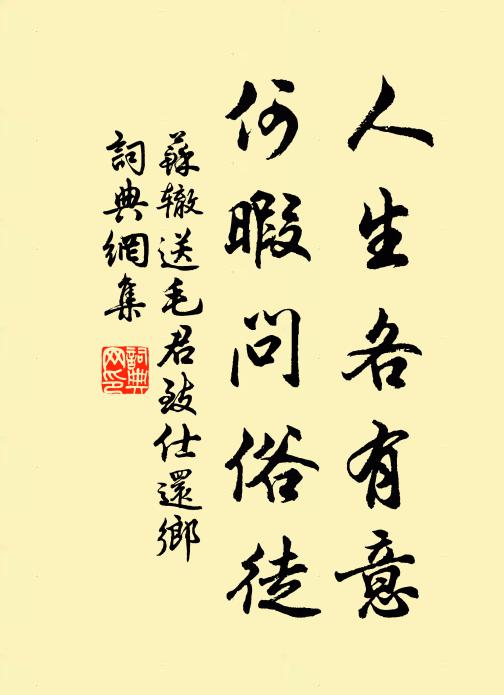 人生各有意
何暇問俗徒
蘇辙送毛君致仕還鄉
詞典網集
詞典網印